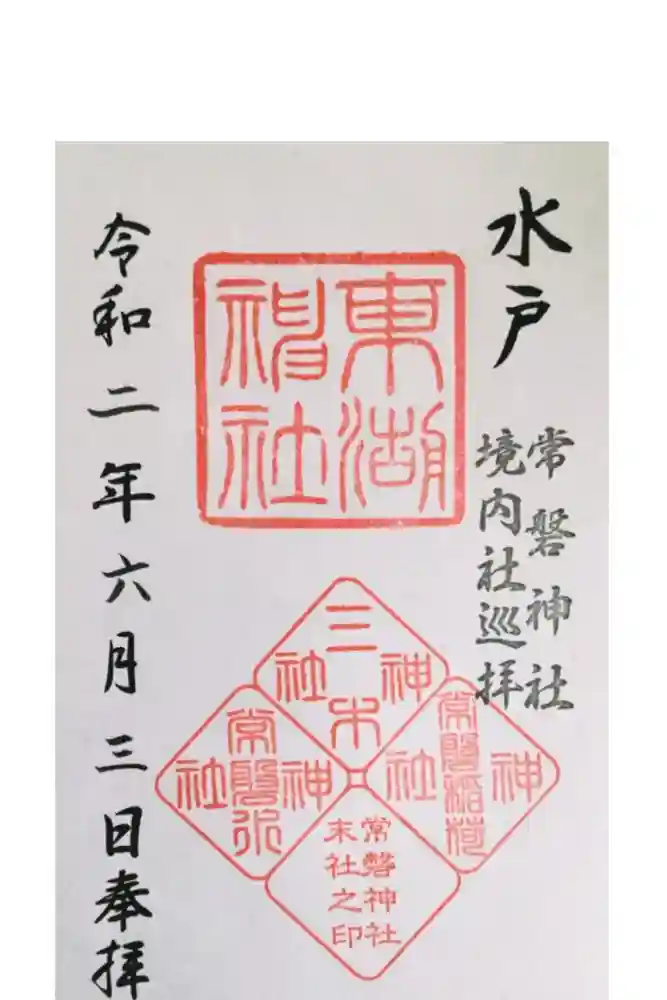 水戸
常磐神社
境内社巡拝
東湖
神社
三木
神社
常磐稲荷
神社
常磐水
神社
常磐神社
末社之印
令和二年六月三日奉拝